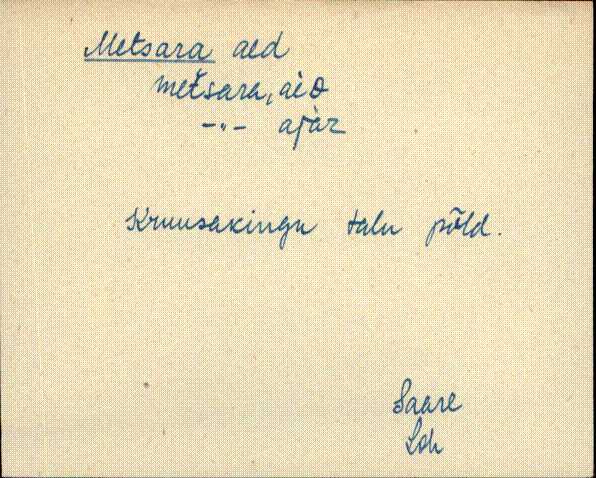 Metsara aed
metsara, aed
-"- ajàr
Kruusakingu talu põld.
Saare
Loh